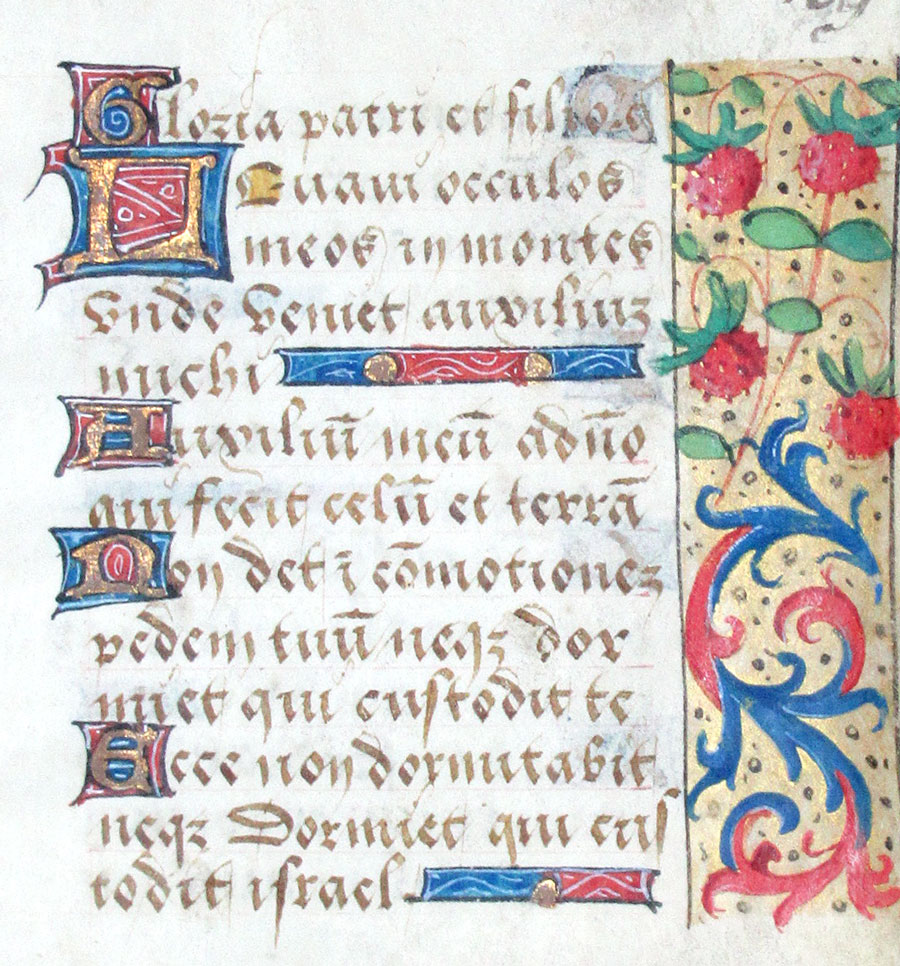 Gloria patri et filio
LEuaui occulos
meos in montes
vnde veniet auxiliuz
michi
Auxiliū meū adn̄o
qui fecit celū et terrā
Non det ī cōmotionez
pedem tuū neqz dor
miet qui custodit te
Ecce non dormitabit
neqz Dormiet qui cus
todit israel